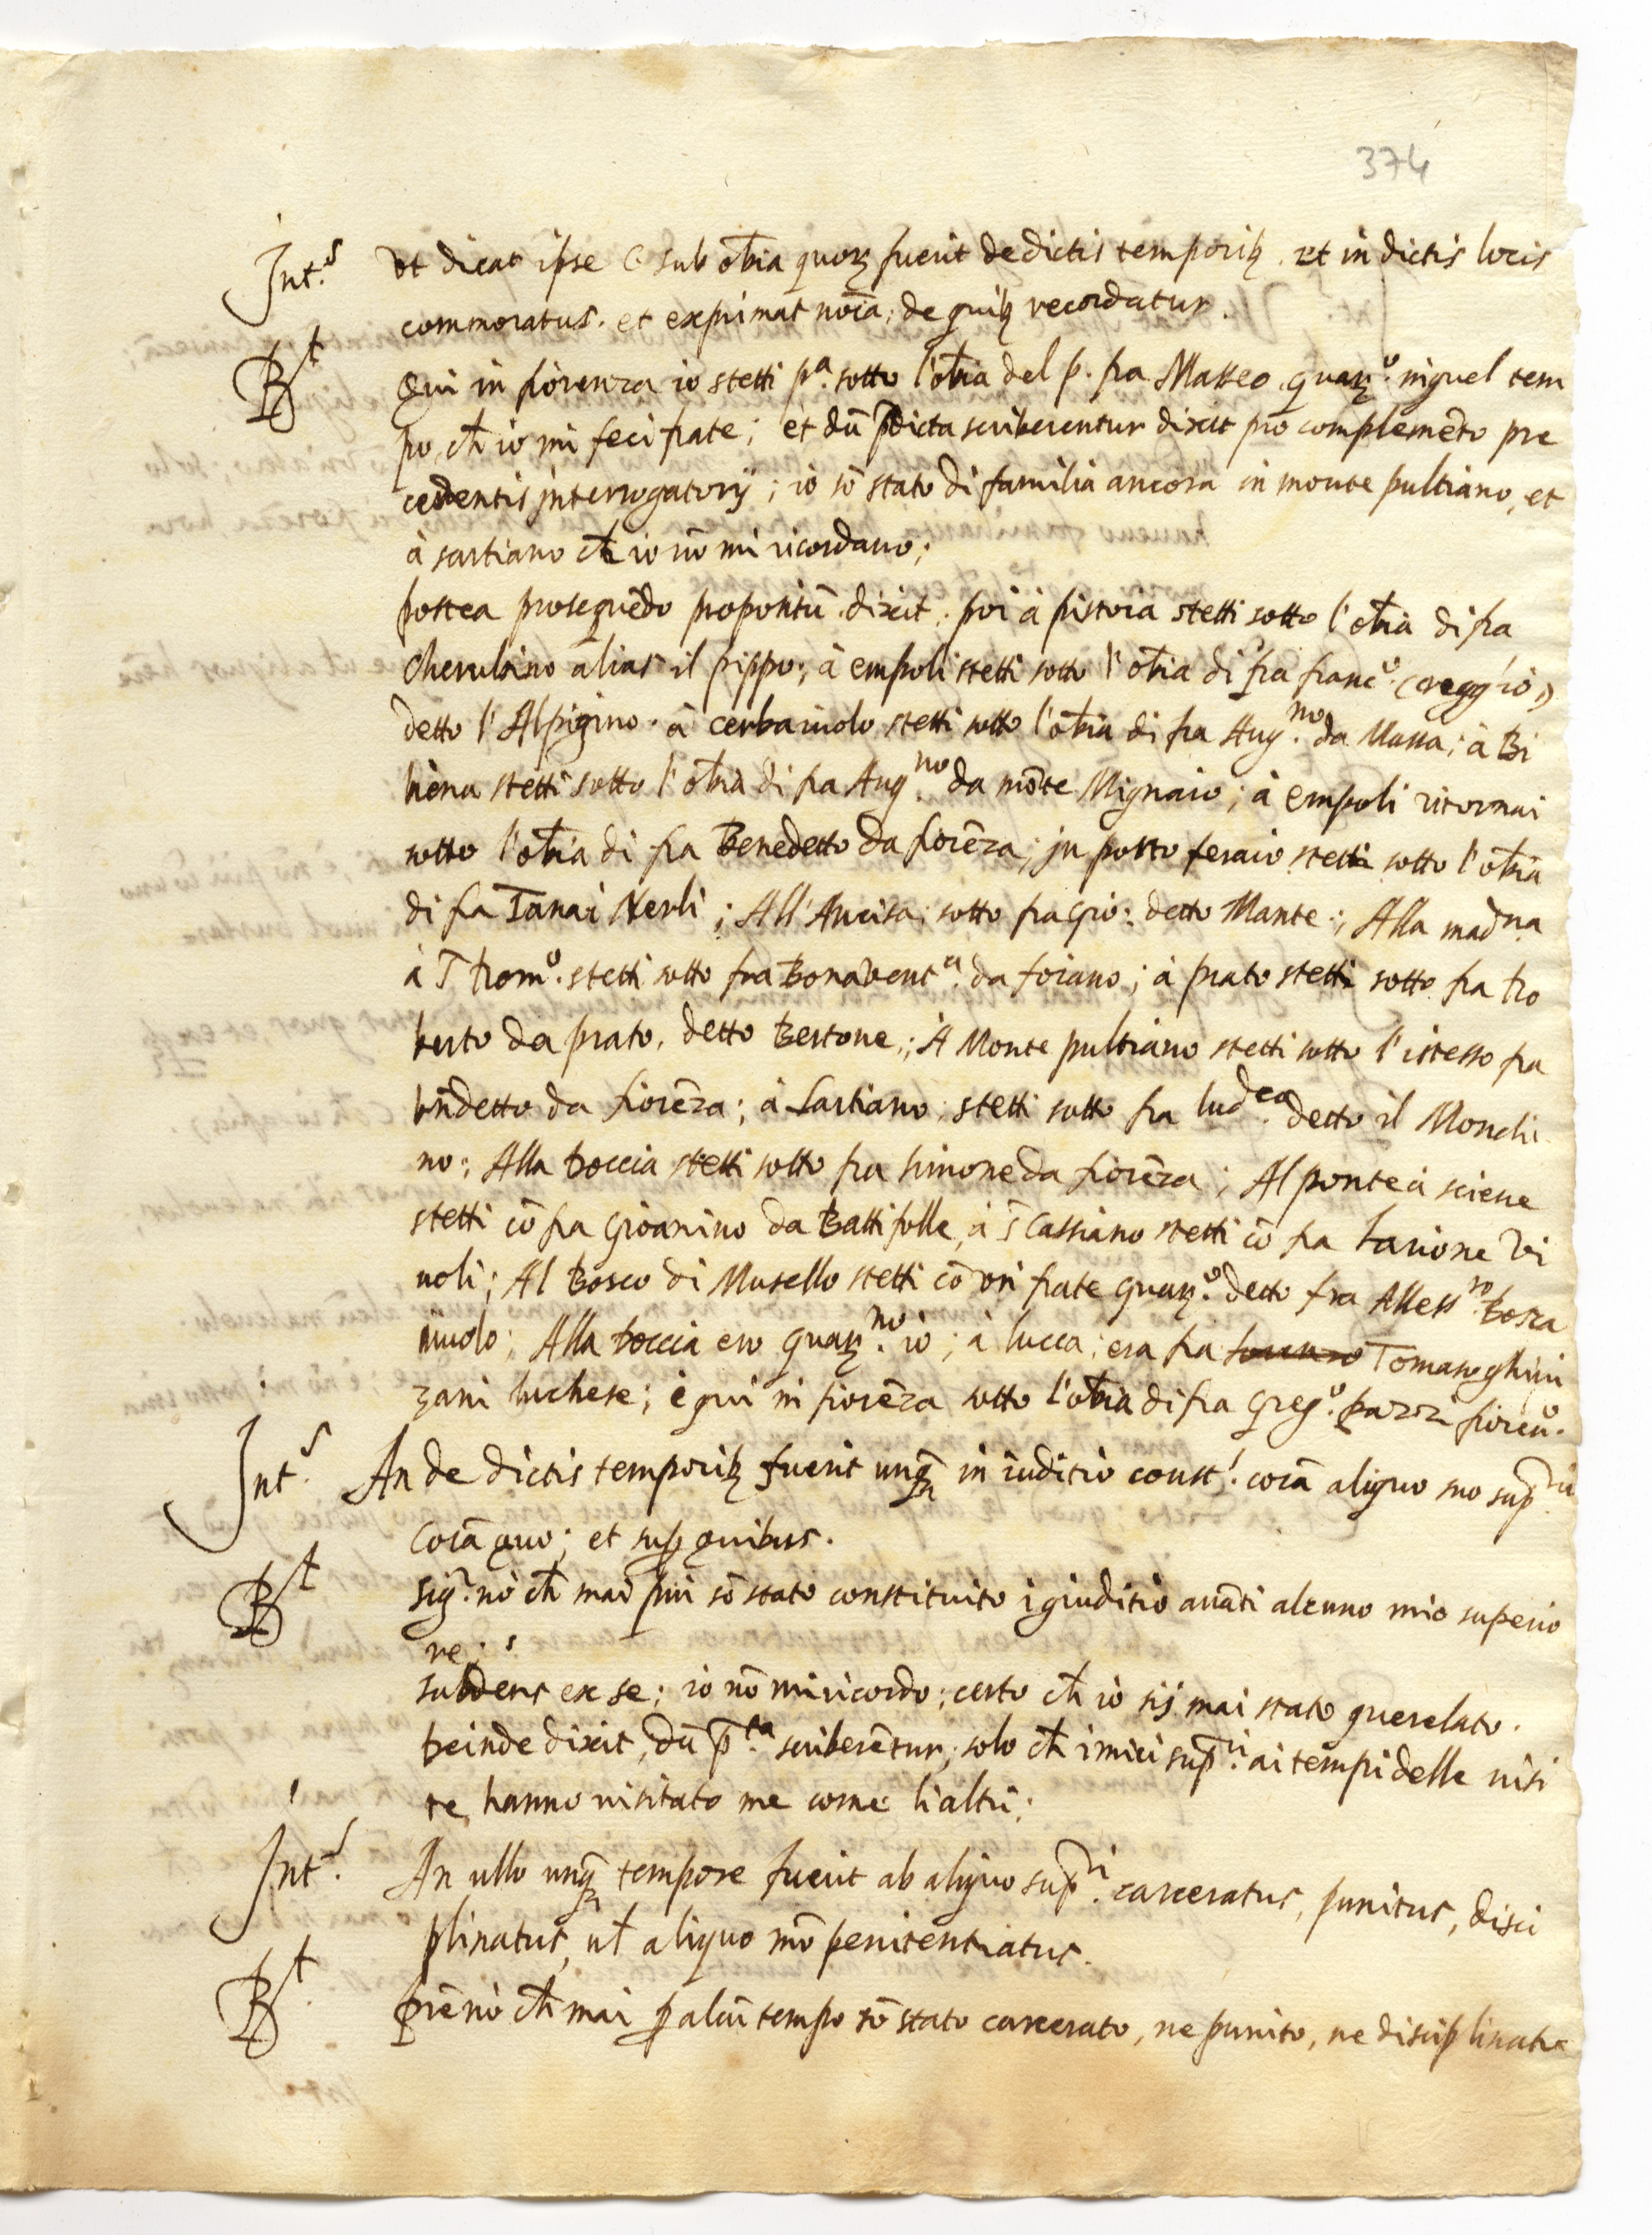 374
Int.s Ut dicat ipse C. sub obia quoꝝ fuerit de dictis temporibꝫ. et in dictis locis
commoratus. et exprimat noīa, de quibꝫ recordatur.
Rt Qui in fiorenza io stetti p.a sotto l'obia del p. fra Matteo guarꝝ.o in quel tem
po, ch̄ io mi feci frate; et dū p̄dicta scriberentur dixit pro complemēto pre
cedentis jnterrogatorij; io sō stato di familia ancora in monte pultiano, et
à sartiano ch̄ io nō mi ricordavo;
postea prosequēdo propositū dixit. poi à pistoia stetti sotto l'obia di fra
Cherubino alias il pippo; à empoli stetti sotto l'obia di fra franc.o (oreggio)
detto l'Alpigino. à cerbaiuolo stetti sotto l'obia di fra Aug.no da Massa; à Bi
biena stetti sotto l'obia di fra Aug.no da mōte Mignaio; à empoli ritornai
sotto l'obia di fra Benedetto da fiorēza; jn porto feraio stetti sotto l'obia
di fra Tanai Nerli; All'Ancisa; sotto fra Gio: detto Mante.; Alla madna
à S Rom.o stetti sotto fra Bonavent.a da foiano; à prato stetti sotto fra Ro
berto da prato, detto Bertone.; A Monte pultiano stetti sotto l'istesso fra
bn̄detto da fiorēza; à Sartiano. stetti sotto fra lud.co detto il Monchi
no.; Alla Roccia stetti sotto fra simone da fiorēza; Al ponte à sciene
stetti cō fra Gioanino da Battifolle, à S Cassiano stetti cō fra Larione Vi
uoli; Al Bosco di Musello stetti cō un frate guarꝝ.o detto fra Aless.ro Bosca
iuolo; Alla Roccia ero guarꝝ.no io; à lucca; era fra Tomaso ghini
zani luchese; è qui in fiorēza sotto l'obia di fra Greg.o pazzi fioren.o
Int.s An de dictis temporibꝫ fuerit unqꝫ in iuditio const.s corā aliquo suo sup.ri
Corā quo; et sup̱ quibus.
Rt Sig.r nò ch̄ mai piu sō stato constituito ī giuditio avāti alcuno mio superio
re;
subdens ex se; io nō mi ricordo; certo ch̄ io sij mai stato querelato.
Deinde dixit, dū p̄.ta scriberētur; solo ch̄ i miei sup.ri ai tempi delle visi
te, hanno visitato me come li altri;
Int.s An ullo unqꝫ tempore fuerit ab aliquo sup.ri carceratus, punitus, disci
plinatus, ul̄ aliquo mō penitentiatus.
Rt. Prē nò ch̄ mai p̱ alcū tempo sō stato carcerato, ne punito, ne disciplinato